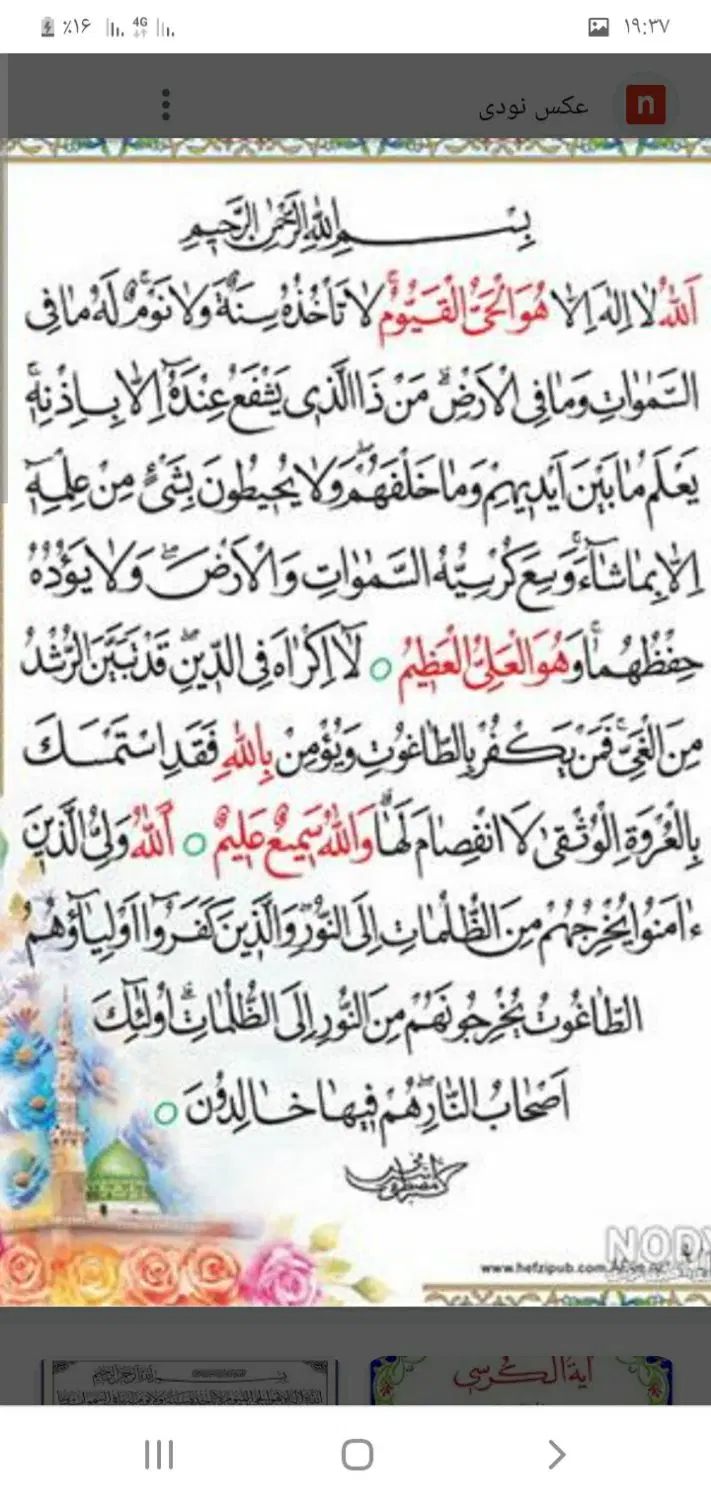 ٪۱۶ 4G ۱۹:۳۷
n عکس نودی
بِسْمِ اللهِ الرَّحْمٰنِ الرَّحیمِ
اَللهُ لا اِلٰهَ اِلّا هُوَ الْحَیُّ الْقَیُّومُ لا تَأْخُذُهُ سِنَةٌ وَلا نَوْمٌ لَهُ ما فِی
السَّمٰواتِ وَما فِی الْاَرْضِ مَنْ ذَا الَّذی یَشْفَعُ عِنْدَهُ اِلّا بِاِذْنِهِ
یَعْلَمُ ما بَیْنَ اَیْدیهِمْ وَما خَلْفَهُمْ وَلا یُحیطُونَ بِشَیْءٍ مِنْ عِلْمِهِ
اِلّا بِما شاءَ وَسِعَ کُرْسِیُّهُ السَّمٰواتِ وَالْاَرْضَ وَلا یَؤُدُهُ
حِفْظُهُما وَهُوَ الْعَلِیُّ الْعَظیمُ لا اِکْراهَ فِی الدّینِ قَدْ تَبَیَّنَ الرُّشْدُ
مِنَ الْغَیِّ فَمَنْ یَکْفُرْ بِالطّاغُوتِ وَیُؤْمِنْ بِاللهِ فَقَدِ اسْتَمْسَکَ
بِالْعُرْوَةِ الْوُثْقیٰ لَا انْفِصامَ لَها وَاللهُ سَمیعٌ عَلیمٌ اَللهُ وَلِیُّ الَّذینَ
ءامَنُوا یُخْرِجُهُمْ مِنَ الظُّلُماتِ اِلَی النُّورِ وَالَّذینَ کَفَرُوا اَوْلِیاؤُهُمُ
الطّاغُوتُ یُخْرِجُونَهُمْ مِنَ النُّورِ اِلَی الظُّلُماتِ اُولٰئِکَ
اَصْحابُ النّارِ هُمْ فیها خالِدُونَ
www.hefzipub.com
آیة الکُرسی